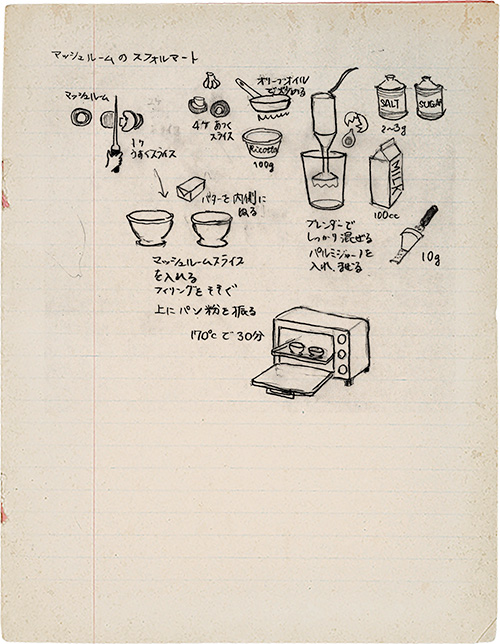 マッシュルームの スフォルマート
マッシュルーム
1ケ
うすくスライス
4ケ あつく
スライス
オリーブオイル
で炒める
Ricotta
100g
SALT
SUGAR
2~3g
MILK
100cc
10g
ブレンダーで
しっかり混ぜる
パルミジャーノを
入れ、まぜる
バターを内側に
ぬる
マッシュルームスライス
を入れる
フィリングをそそぐ
上にパン粉を振る
170℃で30分